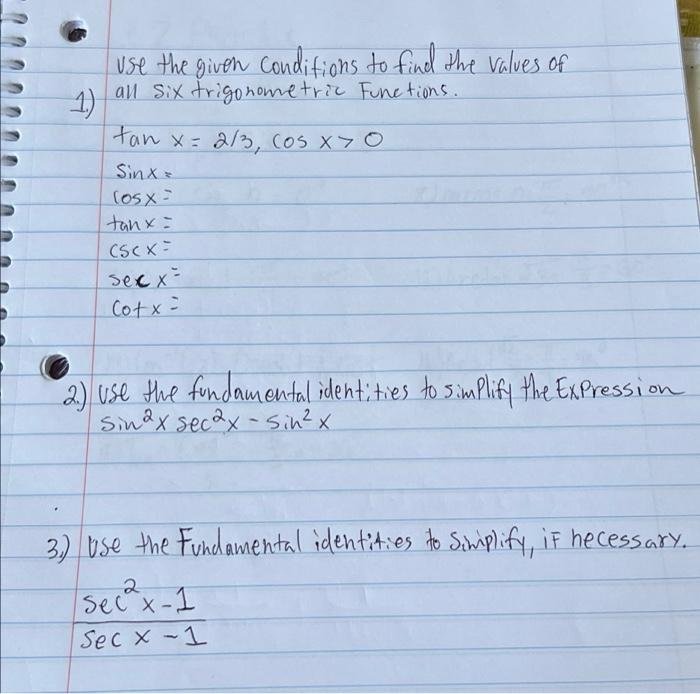 Use the given conditions to find the values of
1.) all six trigonometric Functions.
tan x = 2/3, cos x > 0
Sinx =
cosx =
tanx =
cscx =
secx =
Cotx =
2.) Use the fundamental identities to simplify the Expression
sin²x sec²x - sin²x
3.) Use the Fundamental identities to Simplify, iF necessary.
sec²x-1
sec x -1